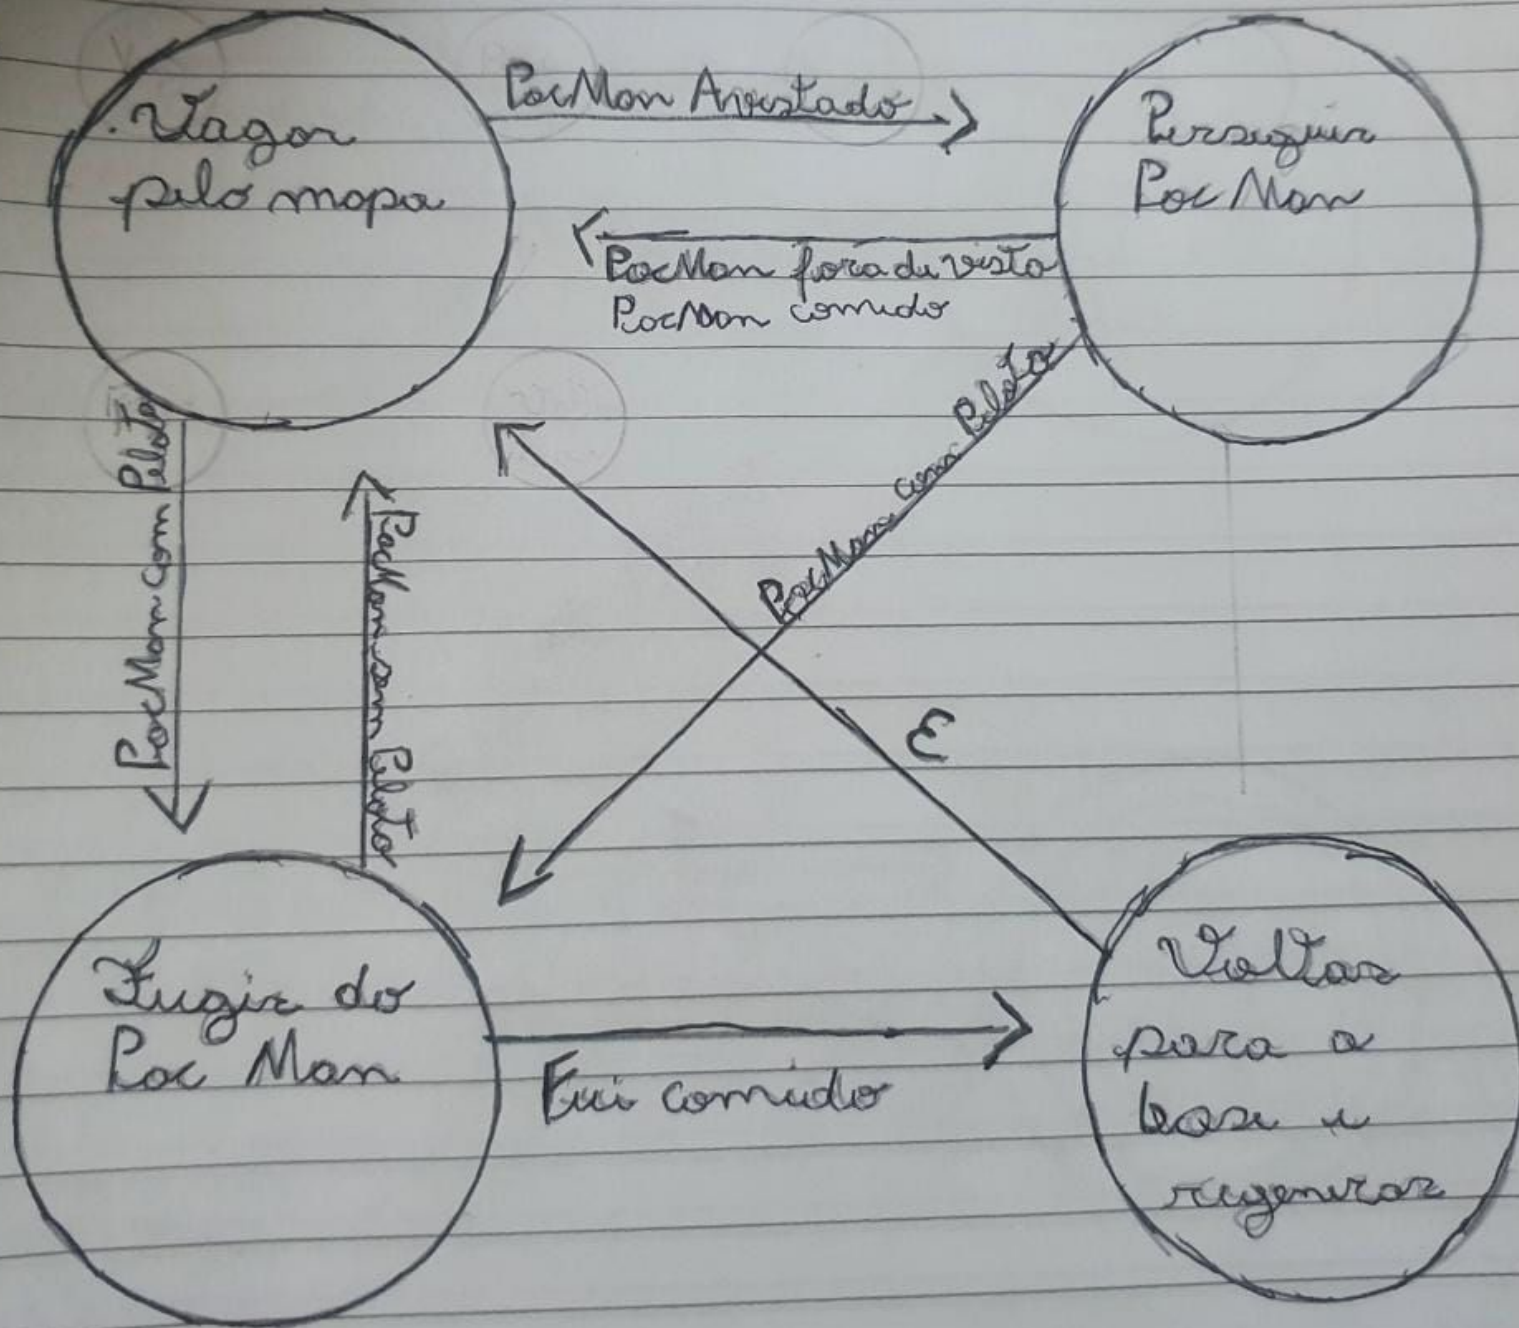 Vagar
pelo mapa
PacMan Avistado
Perseguir
Pac Man
PacMan fora da vista
PacMan comido
PacMan com Pelota
PacMan sem Pelota
PacMan com Pelota
ε
Fugir do
Pac Man
Fui comido
Voltar
para a
base e
regenerar